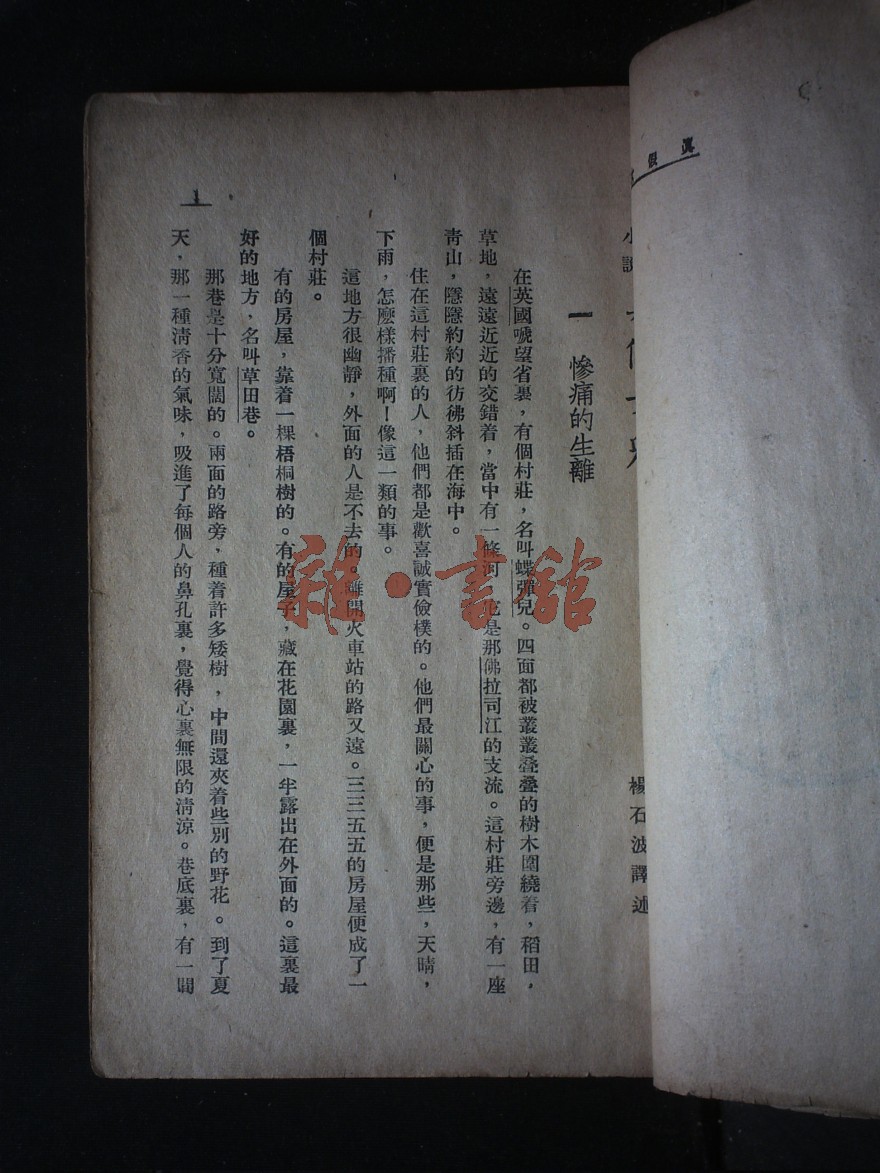 眞假
小說
楊石波譯述
一 慘痛的生離
在英國唬望省裏，有個村莊，名叫蝶彈兒。四面都被叢叢疊疊的樹木圍繞着，稻田，
草地，遠遠近近的交錯着，當中有一條河 是那佛拉司江的支流。這村莊旁邊，有一座
靑山，隱隱約約的彷彿斜插在海中。
住在這村莊裏的人，他們都是歡喜誠實儉樸的。他們最關心的事，便是那些，天晴，
下雨，怎麽樣播種啊！像這一類的事。
這地方很幽靜，外面的人是不去的。離開火車站的路又遠。三三五五的房屋便成了一
個村莊。
有的房屋，靠着一棵梧桐樹的。有的屋子，藏在花園裏，一半露出在外面的。這裏最
好的地方，名叫草田巷。
那巷是十分寬闊的。兩面的路旁，種着許多矮樹，中間還夾着些別的野花。到了夏
天，那一種淸香的氣味，吸進了每個人的鼻孔裏，覺得心裏無限的淸涼。巷底裏，有一間
1
雜·書館